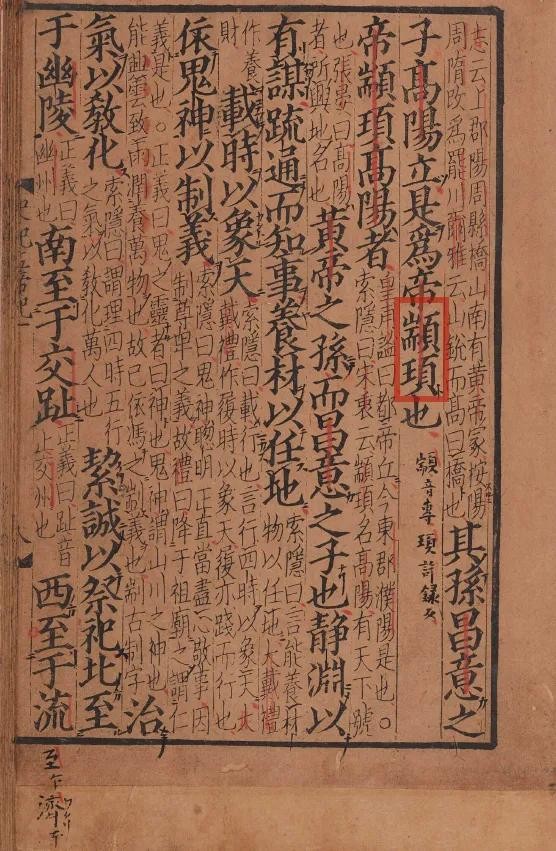 志云上郡陽周縣橋山南有黃帝冢按陽
周隋改為羅川爾雅云山銳而高曰橋也
其孫昌意之
子高陽立是爲帝顓頊也
顓音專頊許録反
帝顓頊高陽者
皇甫謐曰都帝丘今東郡濮陽是也。
索隱曰宋衷云顓頊名高陽有天下號
也張晏曰高陽
者所興地名也
黃帝之孫而昌意之子也静淵以
有謀疏通而知事養材以任地
索隱曰言能養材
物以任地大戴禮
作養
財
載時以象天
索隱曰載行也言行四時以象天大
戴禮作履時以象天履亦踐而行也
依鬼神以制義
索隱曰鬼神聦明正直當盡心敬事因
制尊卑之義故禮曰降于祖廟之謂仁
義是也。正義曰鬼之靈者曰神也鬼神謂山川之神也
能興雲致雨潤養萬物也故己依馮之剬義也剬古制字
治
氣以教化
索隱曰謂理四時五行
之氣以教化萬人也
絜誠以祭祀北至
于幽陵
正義曰
幽州也
南至于交趾
正義曰趾音
止交州也
西至于流